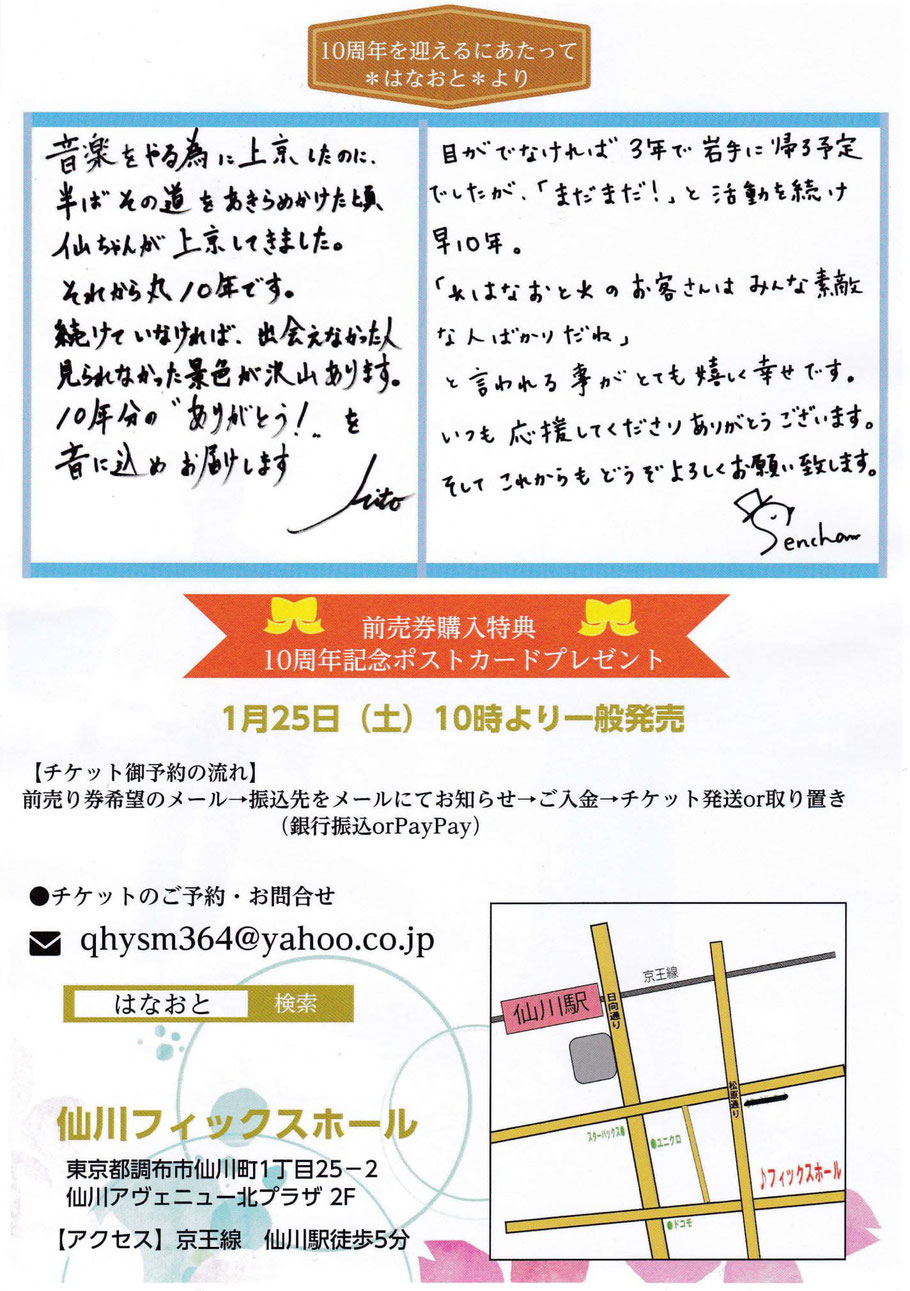 10周年を迎えるにあたって
＊はなおと＊より
音楽をやる為に上京したのに、
半ばその道をあきらめかけた頃
仙ちゃんが上京してきました。
それから丸10年です。
続けていなければ、出会えなかった人
見られなかった景色が沢山あります。
10年分の〝ありがとう!〟を
音に込めお届けします
目がでなければ3年で岩手に帰る予定
でしたが、「まだまだ!」と活動を続け
早10年。
「*はなおと*のお客さんはみんな素敵
な人ばかりだね」
と言われる事がとても嬉しく幸せです。
いつも応援してくださりありがとうございます。
そしてこれからもどうぞよろしくお願い致します。
Senchan
前売券購入特典
10周年記念ポストカードプレゼント
1月25日（土）10時より一般発売
【チケット御予約の流れ】
前売り券希望のメール→振込先をメールにてお知らせ→ご入金→チケット発送or取り置き
（銀行振込orPayPay）
●チケットのご予約・お問合せ
qhysm364@yahoo.co.jp
はなおと 検索
仙川フィックスホール
東京都調布市仙川町1丁目25－2
仙川アヴェニュー北プラザ 2F
【アクセス】京王線　仙川駅徒歩5分
京王線
仙川駅
日向通り
松原通り
スターバックス●
●ユニクロ
♪フィックスホール
●ドコモ